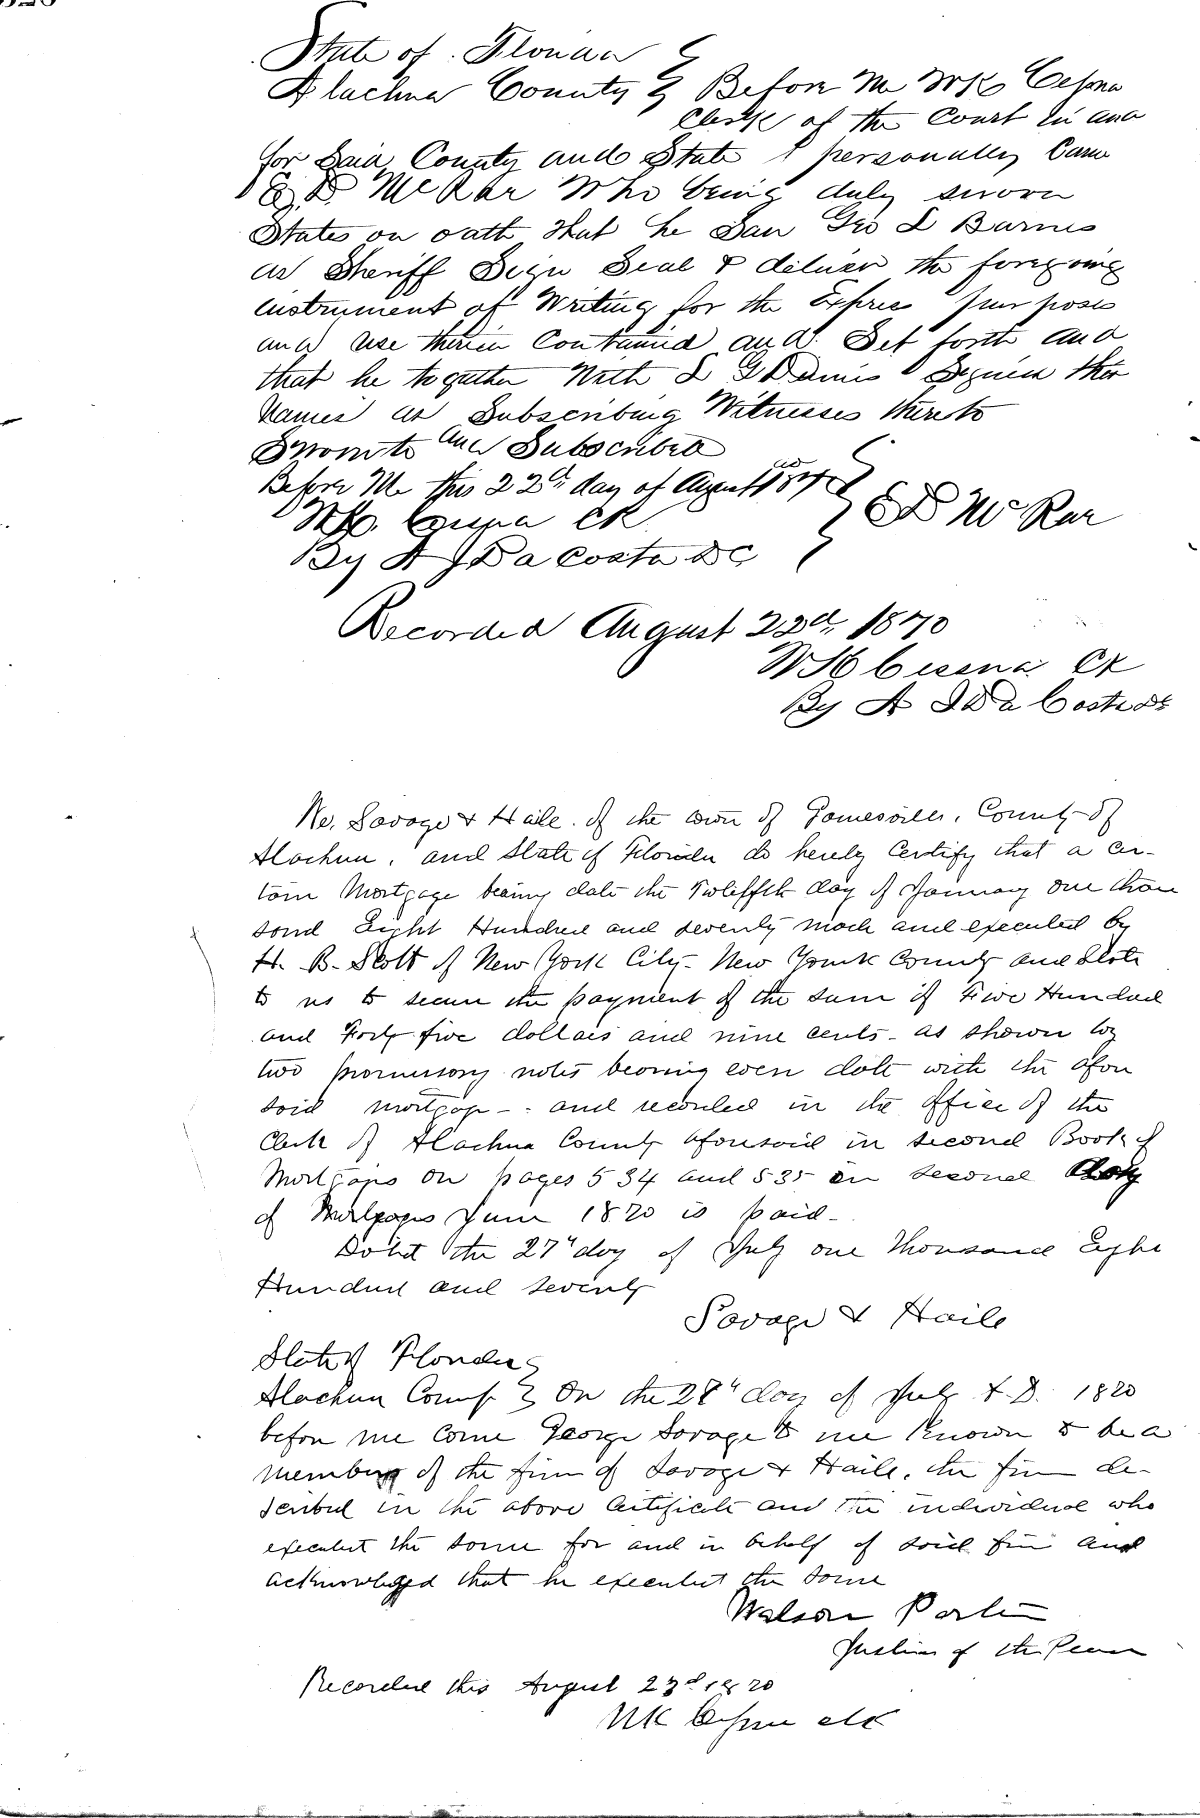 State of Florida
Alachua County Before Me W K Cessna
Clerk of the Court in and
for Said County and State personally Came
E D McRar Who being duly sworn
States on oath that he Saw Geo L Barnes
as Sheriff Sign Seal & deliver the foregoing
instrument of Writing for the Expres purposes
and use therein Contained and Set forth and
that he together With L G Dennis Signed ther
Names as Subscribing Witnesses thereto
Sworn to and Subscribed
Before Me this 22d day of August 1870
W K Cessna Ck
By A J Da Costa DC
E D McRar
Recorded August 22d, 1870
W K Cessna Ck
By A J Da Costa Dc
We, Savage & Haile of the town of Gainesville, County of
Alachua, and State of Florida do hereby Certify that a cer-
tain Mortgage bearing date the Twelffth day of January one thou
sand Eight Hundred and seventy made and executed by
H. B. Scott of New York City - New York County and State
to us to secure the payment of the sum of Five Hundred
and Forty five dollars and nine cents - as shown by
two promissory notes bearing even date with the afore
said mortgage - and recorded in the Office of the
Clerk of Alachua County aforesaid in second Book of
Mortgages on pages 534 and 535 in second
of Mortgages June 1870 is paid -
Dated the 27" day of July one Thousand Eight
Hundred and seventy
Savage & Haile
State of Florida
Alachua County On the 28" day of July A.D. 1870
before me came George Savage to me Known to be a
member of the firm of Savage & Haile, the firm de-
scribed in the above Certificate and the individual who
executed the same for and in behalf of said firm and
acknowledged that he executed the same
Watson Porter
Justice of the Peace
Recorded this August 23d 1870
W K Cessna clk